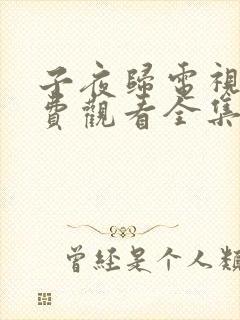 子夜歸電視
費觀看全集
曾經是个人類